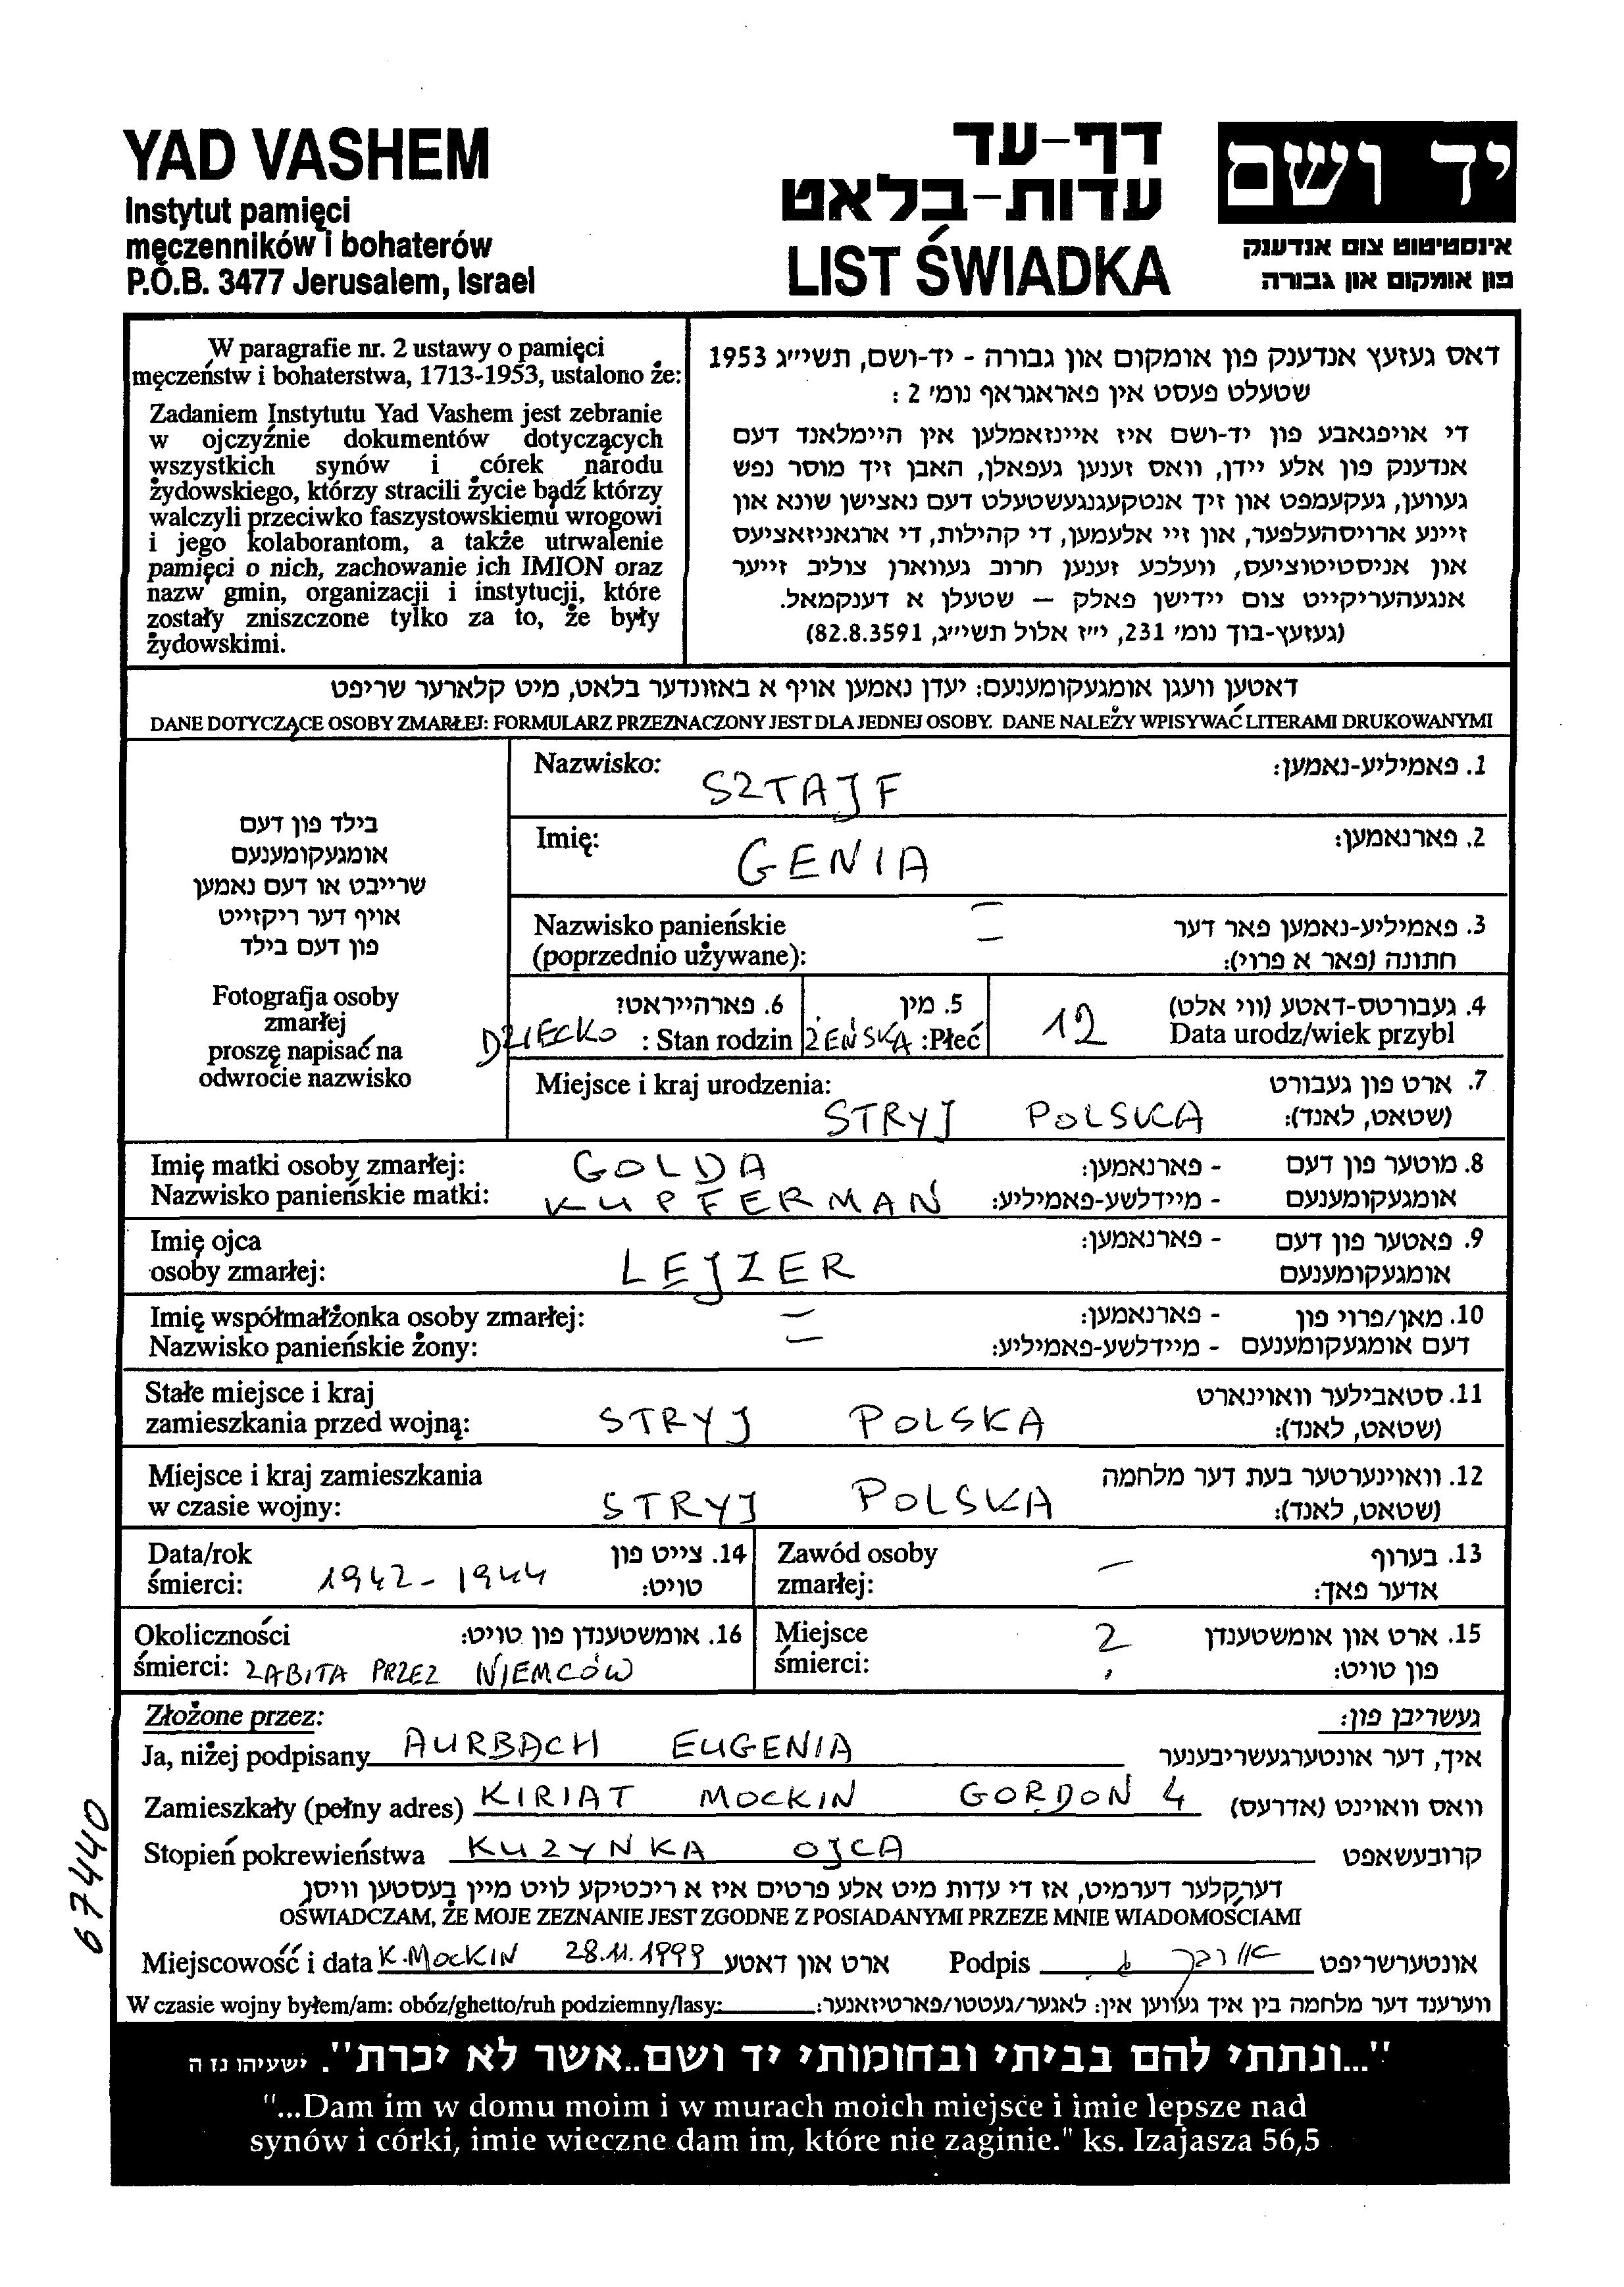 YAD VASHEM
Instytut pamięci
męczenników i bohaterów
P.O.B. 3477 Jerusalem, Israel
דף-עד
עדות-בלאט
LIST ŚWIADKA
יד ושם
אינסטיטוט צום אנדענק
פון אומקום און גבורה
W paragrafie nr. 2 ustawy o pamięci
męczeństw i bohaterstwa, 1713-1953, ustalono że:
Zadaniem Instytutu Yad Vashem jest zebranie
w ojczyźnie dokumentów dotyczących
wszystkich synów i córek narodu
żydowskiego, którzy stracili życie bądź którzy
walczyli przeciwko faszystowskiemu wrogowi
i jego kolaborantom, a także utrwalenie
pamięci o nich, zachowanie ich IMION oraz
nazw gmin, organizacji i instytucji, które
zostały zniszczone tylko za to, że były
żydowskimi.
דאס געזעץ אנדענק פון אומקום און גבורה - יד-ושם, תשי״ג 1953
שטעלט פעסט אין פאראגראף נומ׳ 2 :
די אויפגאבע פון יד-ושם איז איינזאמלען אין היימלאנד דעם
אנדענק פון אלע יידן, וואס זענען געפאלן, האבן זיך מוסר נפש
געווען, געקעמפט און זיך אנטקעגנגעשטעלט דעם נאצישן שונא און
זיינע ארויסהעלפער, און זיי אלעמען, די קהילות, די ארגאניזאציעס
און אניסטיטוציעס, וועלכע זענען חרוב געווארן צוליב זייער
אנגעהעריקייט צום יידישן פאלק — שטעלן א דענקמאל.
(געזעץ-בוך נומ׳ 231, י״ז אלול תשי״ג, 82.8.3591)
דאטען וועגן אומגעקומענעם: יעדן נאמען אויף א באזונדער בלאט, מיט קלארער שריפט
DANE DOTYCZĄCE OSOBY ZMARŁEJ: FORMULARZ PRZEZNACZONY JEST DLA JEDNEJ OSOBY. DANE NALEŻY WPISYWAĆ LITERAMI DRUKOWANYMI
בילד פון דעם
אומגעקומענעם
שרייבט או דעם נאמען
אויף דער ריקזייט
פון דעם בילד
Fotografja osoby
zmarłej
proszę napisać na
odwrocie nazwisko
Nazwisko: SZTAJF 1. פאמיליע-נאמען:
Imię: GENIA 2. פארנאמען:
Nazwisko panieńskie — 3. פאמיליע-נאמען פאר דער
(poprzednio używane): — חתונה (פאר א פרוי):
6. פארהייראט? 5. מין 4. געבורטס-דאטע (ווי אלט)
DZIECKO : Stan rodzin ŻEŃSKA :Płeć 12 Data urodz/wiek przybl
Miejsce i kraj urodzenia: 7. ארט פון געבורט
STRYJ POLSKA (שטאט, לאנד):
Imię matki osoby zmarłej: GOLDA - פארנאמען: 8. מוטער פון דעם
Nazwisko panieńskie matki: KUPFERMAN - מיידלשע-פאמיליע: אומגעקומענעם
Imię ojca - פארנאמען: 9. פאטער פון דעם
osoby zmarłej: LEJZER אומגעקומענעם
Imię współmałżonka osoby zmarłej: — - פארנאמען: 10. מאן/פרוי פון
Nazwisko panieńskie żony: — - מיידלשע-פאמיליע: דעם אומגעקומענעם
Stałe miejsce i kraj 11. סטאבילער וואוינארט
zamieszkania przed wojną: STRYJ POLSKA (שטאט, לאנד):
Miejsce i kraj zamieszkania 12. וואוינערטער בעת דער מלחמה
w czasie wojny: STRYJ POLSKA (שטאט, לאנד):
Data/rok 14. צייט פון Zawód osoby 13. בערוף
śmierci: 1942-1944 טויט: zmarłej: — אדער פאך:
Okoliczności 16. אומשטענדן פון טויט: Miejsce ? 15. ארט און אומשטענדן
śmierci: ZABITA PRZEZ NIEMCÓW śmierci: פון טויט:
Złożone przez: געשריבן פון:
Ja, niżej podpisany AURBACH EUGENIA איך, דער אונטערגעשריבענער
Zamieszkały (pełny adres) KIRIAT MOCKIN GORDON 4 וואס וואוינט (אדרעס)
Stopień pokrewieństwa KUZYNKA OJCA קרובעשאפט
דערקלער דערמיט, אז די עדות מיט אלע פרטים איז א ריכטיקע לויט מיין בעסטען וויסן
OŚWIADCZAM, ŻE MOJE ZEZNANIE JEST ZGODNE Z POSIADANYMI PRZEZE MNIE WIADOMOŚCIAMI
Miejscowość i data K.MOCKIN 28.11.1999 ארט און דאטע Podpis אונטערשריפט
W czasie wojny byłem/am: obóz/ghetto/ruh podziemny/lasy: ווערענד דער מלחמה בין איך געווען אין: לאגער/געטטו/פארטיזאנער:
67440
"...ונתתי להם בביתי ובחומותי יד ושם..אשר לא יכרת". ישעיהו נז ה
"...Dam im w domu moim i w murach moich miejsce i imie lepsze nad
synów i córki, imie wieczne dam im, które nie zaginie." ks. Izajasza 56,5